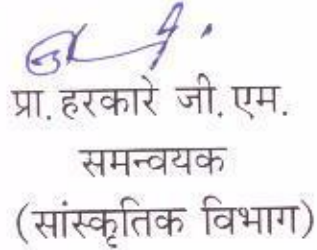 प्रा. हरकारे जी. एम.
समन्वयक
(सांस्कृतिक विभाग)